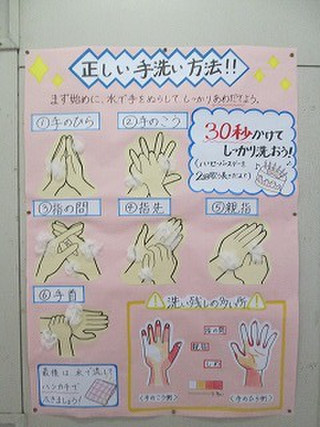 正しい手洗い方法!!
まず始めに、水で手をぬらして、しっかりあわだてよう。
①手のひら
②手のこう
30秒かけて
しっかり洗おう!
(ハッピーバースデーを
2回歌う長さだよ♪)
③指の間
④指先
⑤親指
⑥手首
洗い残しの多い所
指の間
親指
しわ
(手のこう側)
(手のひら側)
最後は水で流して
ハンカチで
ふきましょう!